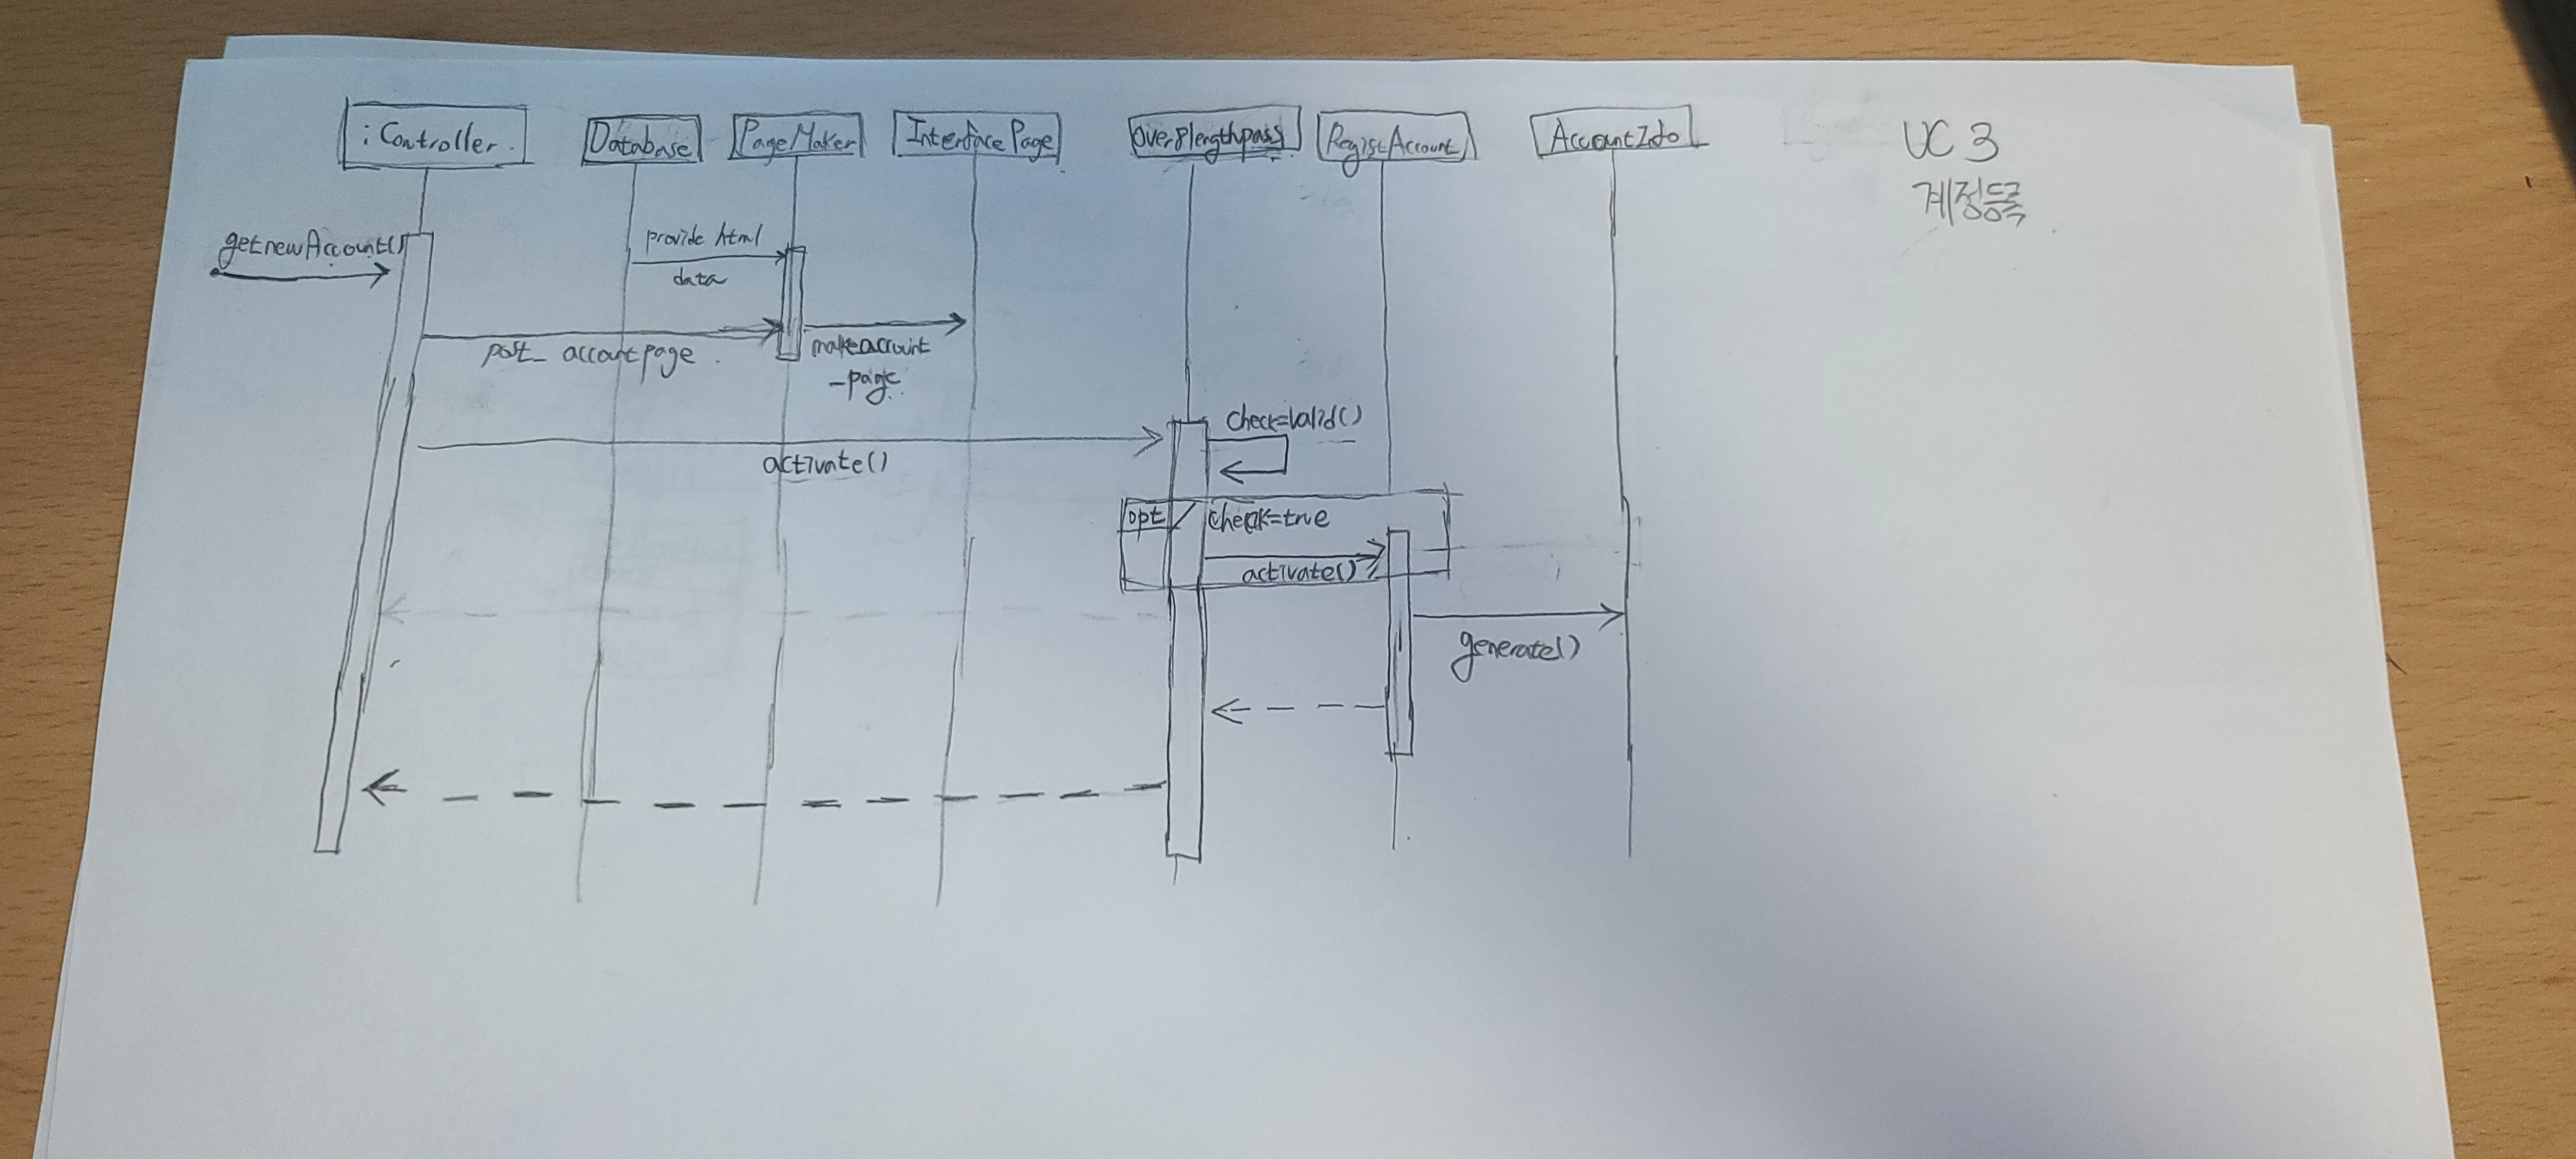 :Controller.
Database
PageMaker
Interface Page
over8lengthpass
RegistAccount
AccountIdo
UC 3
계정등록
getnewAccount()
provide html
data
post_ accountpage.
makeaccount
-page
check=valid()
activate()
opt
check=true
activate()
generate()